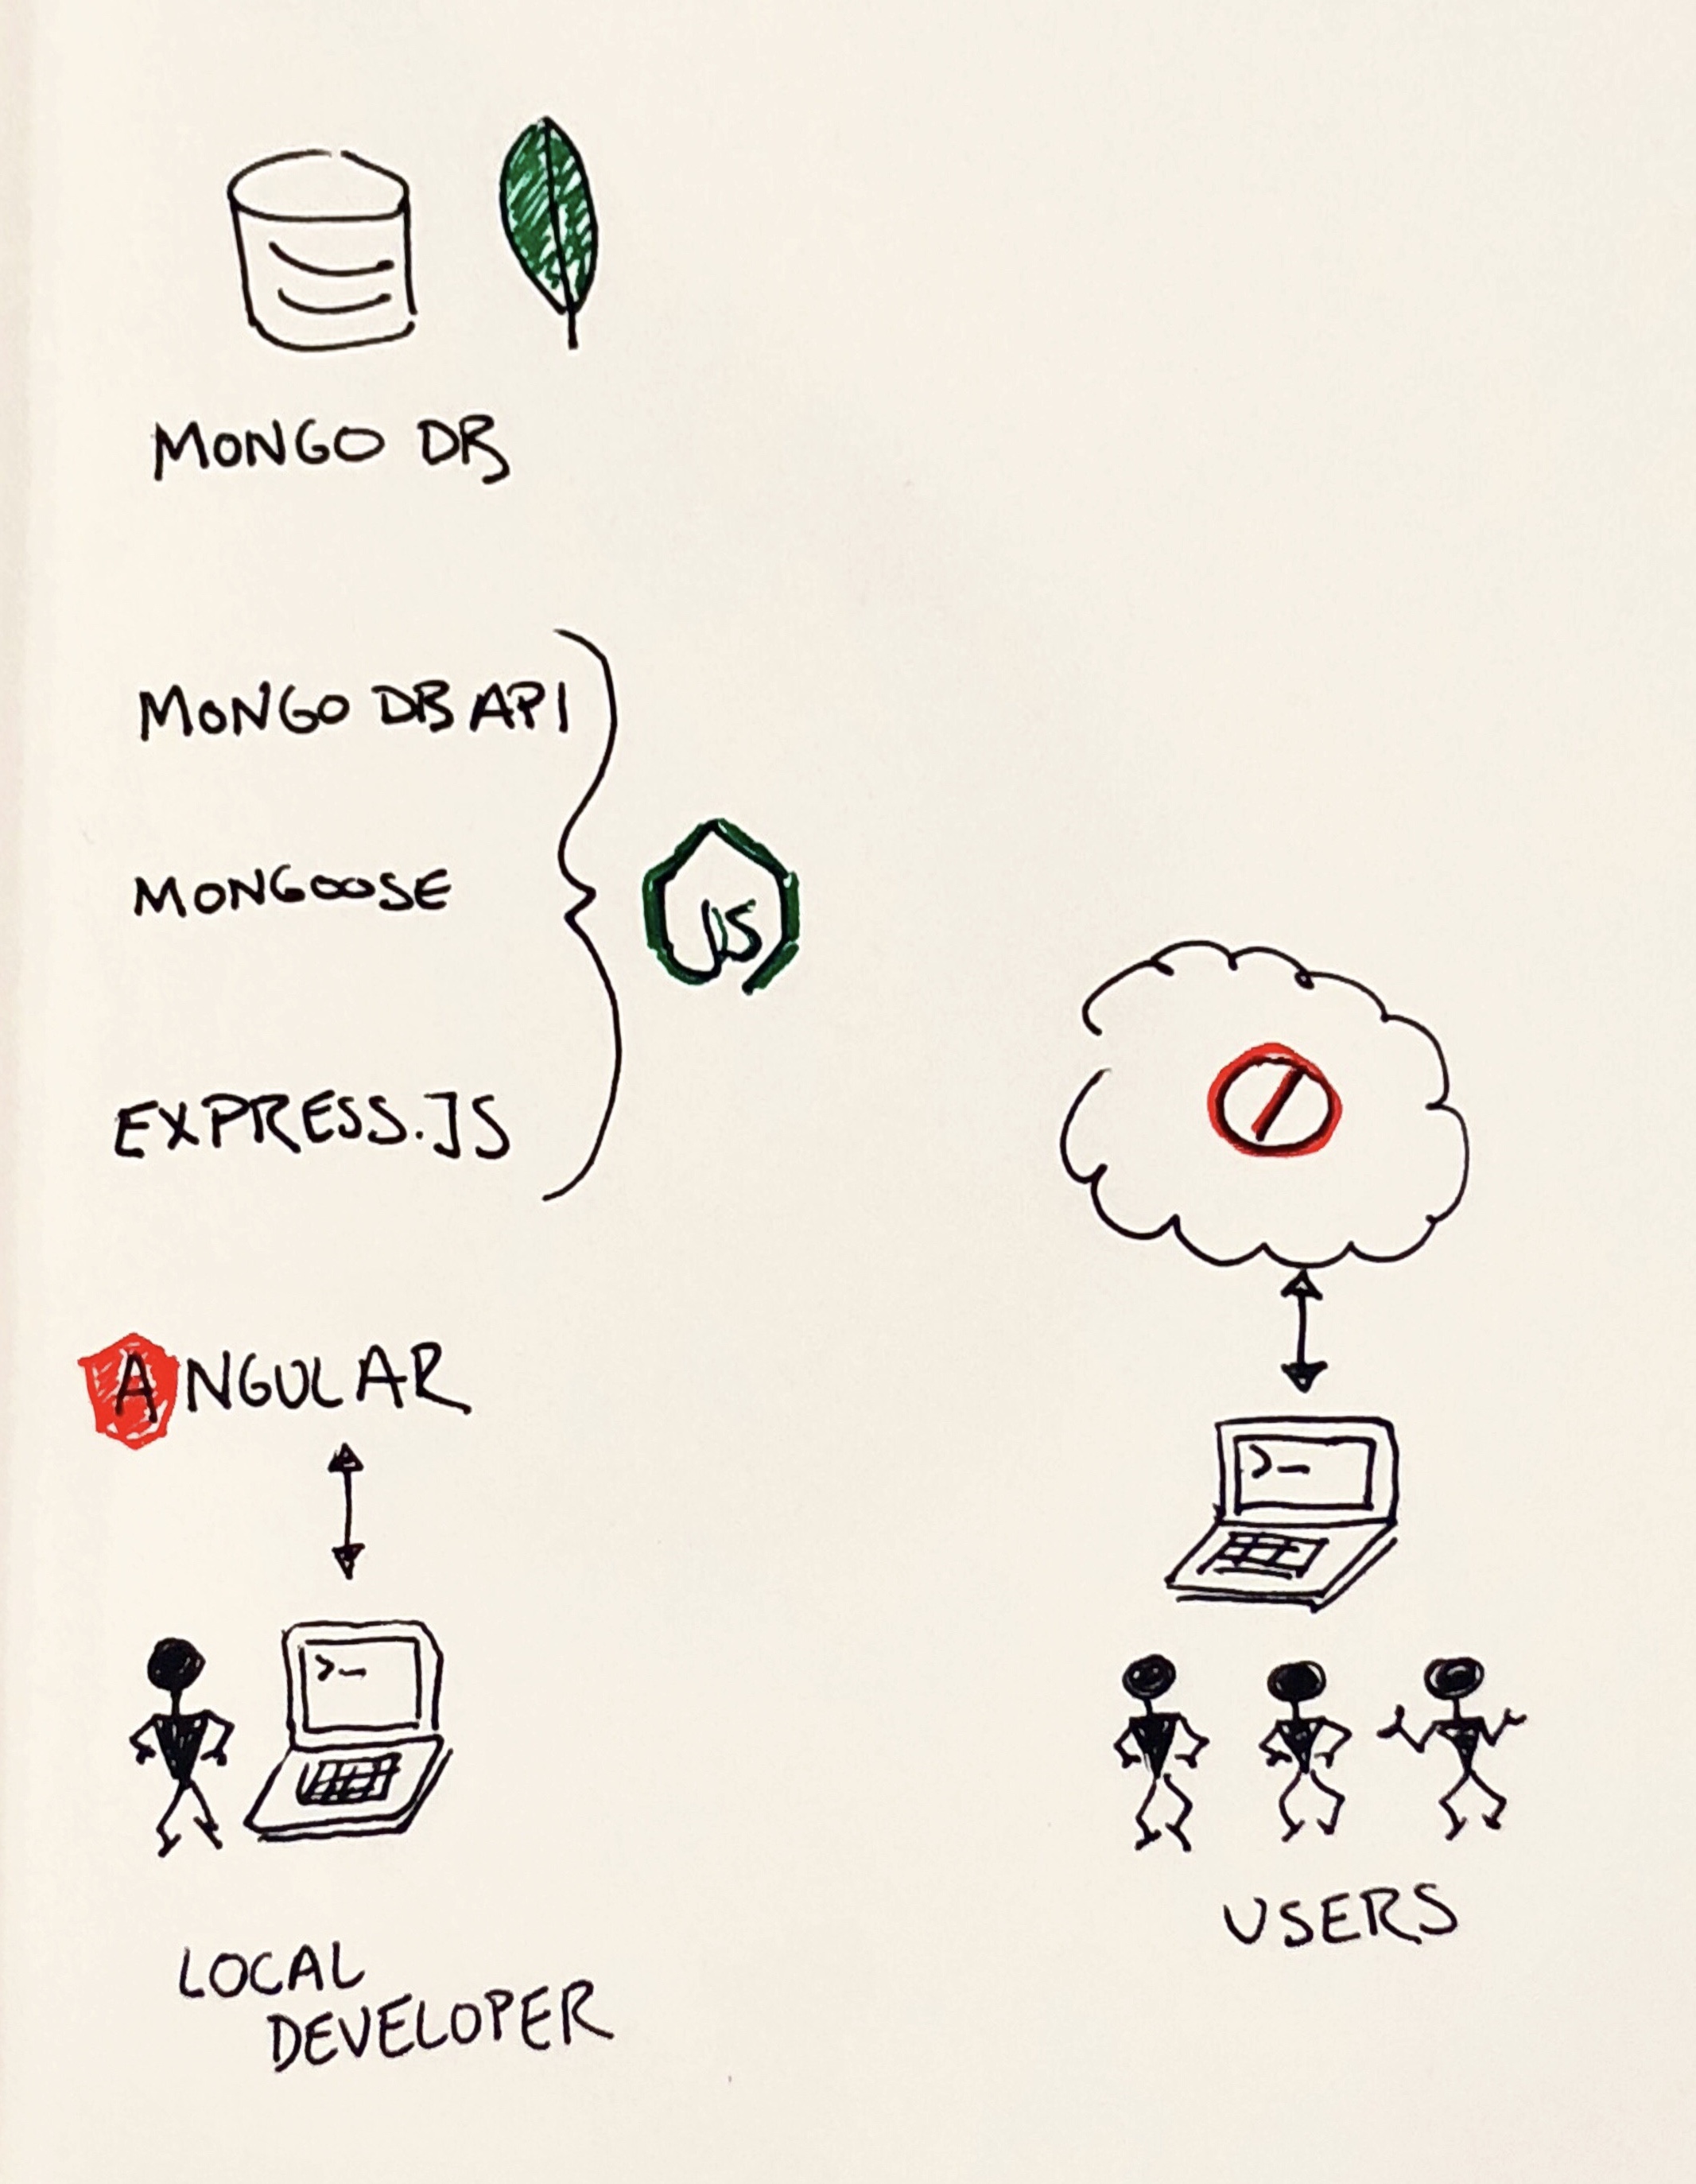 MONGO DB
MONGO DB API
MONGOOSE
JS
EXPRESS.JS
ANGULAR
>_
>_
LOCAL
DEVELOPER
USERS